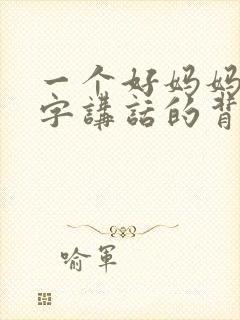 一个好妈妈
字講話的背
喻軍